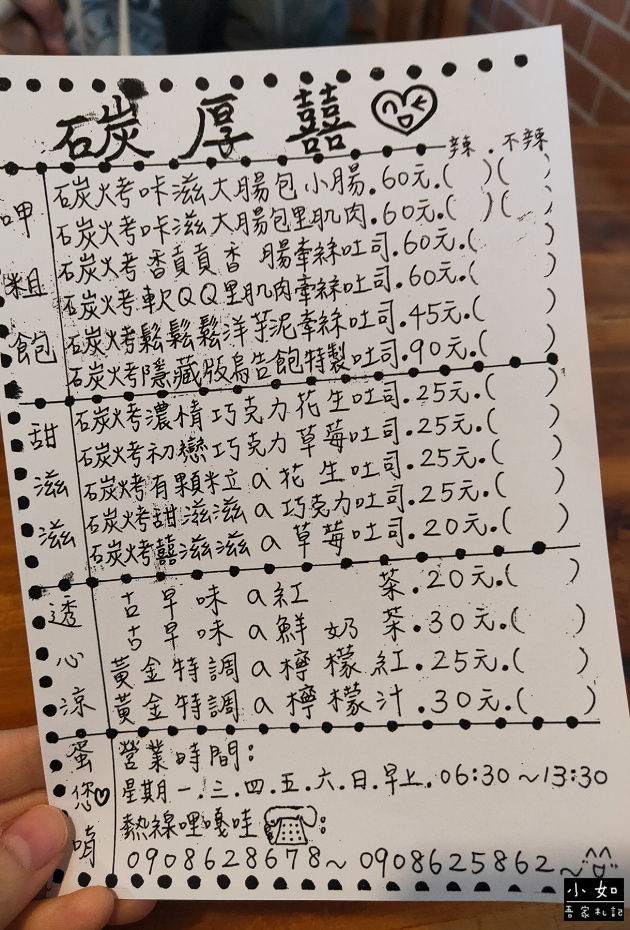 碳厚囍
辣.不辣
呷粗飽
碳火烤咔滋大腸包小腸.60元.( )( )
碳火烤咔滋大腸包里肌肉.60元.( )( )
碳火烤香貢貢香腸牽絲吐司.60元.( )
碳火烤軟QQ里肌肉牽絲吐司.60元.( )
碳火烤鬆鬆鬆洋芋泥牽絲吐司.45元.( )
碳火烤隱藏版烏告飽特製吐司.90元.( )
甜滋滋
碳火烤濃情巧克力花生吐司.25元.( )
碳火烤初戀巧克力草莓吐司.25元.( )
碳火烤有顆粒a花生吐司.25元.( )
碳火烤甜滋滋a巧克力吐司.25元.( )
碳火烤囍滋滋a草莓吐司.20元.( )
透心涼
古早味a紅茶.20元.( )
古早味a鮮奶茶.30元.( )
黃金特調a檸檬紅.25元.( )
黃金特調a檸檬汁.30元.( )
蛋您唷
營業時間:
星期一.三.四.五.六.日.早上.06:30~13:30
熱線哩嘎哇:
0908628678~0908625862~
小如
吾家札記